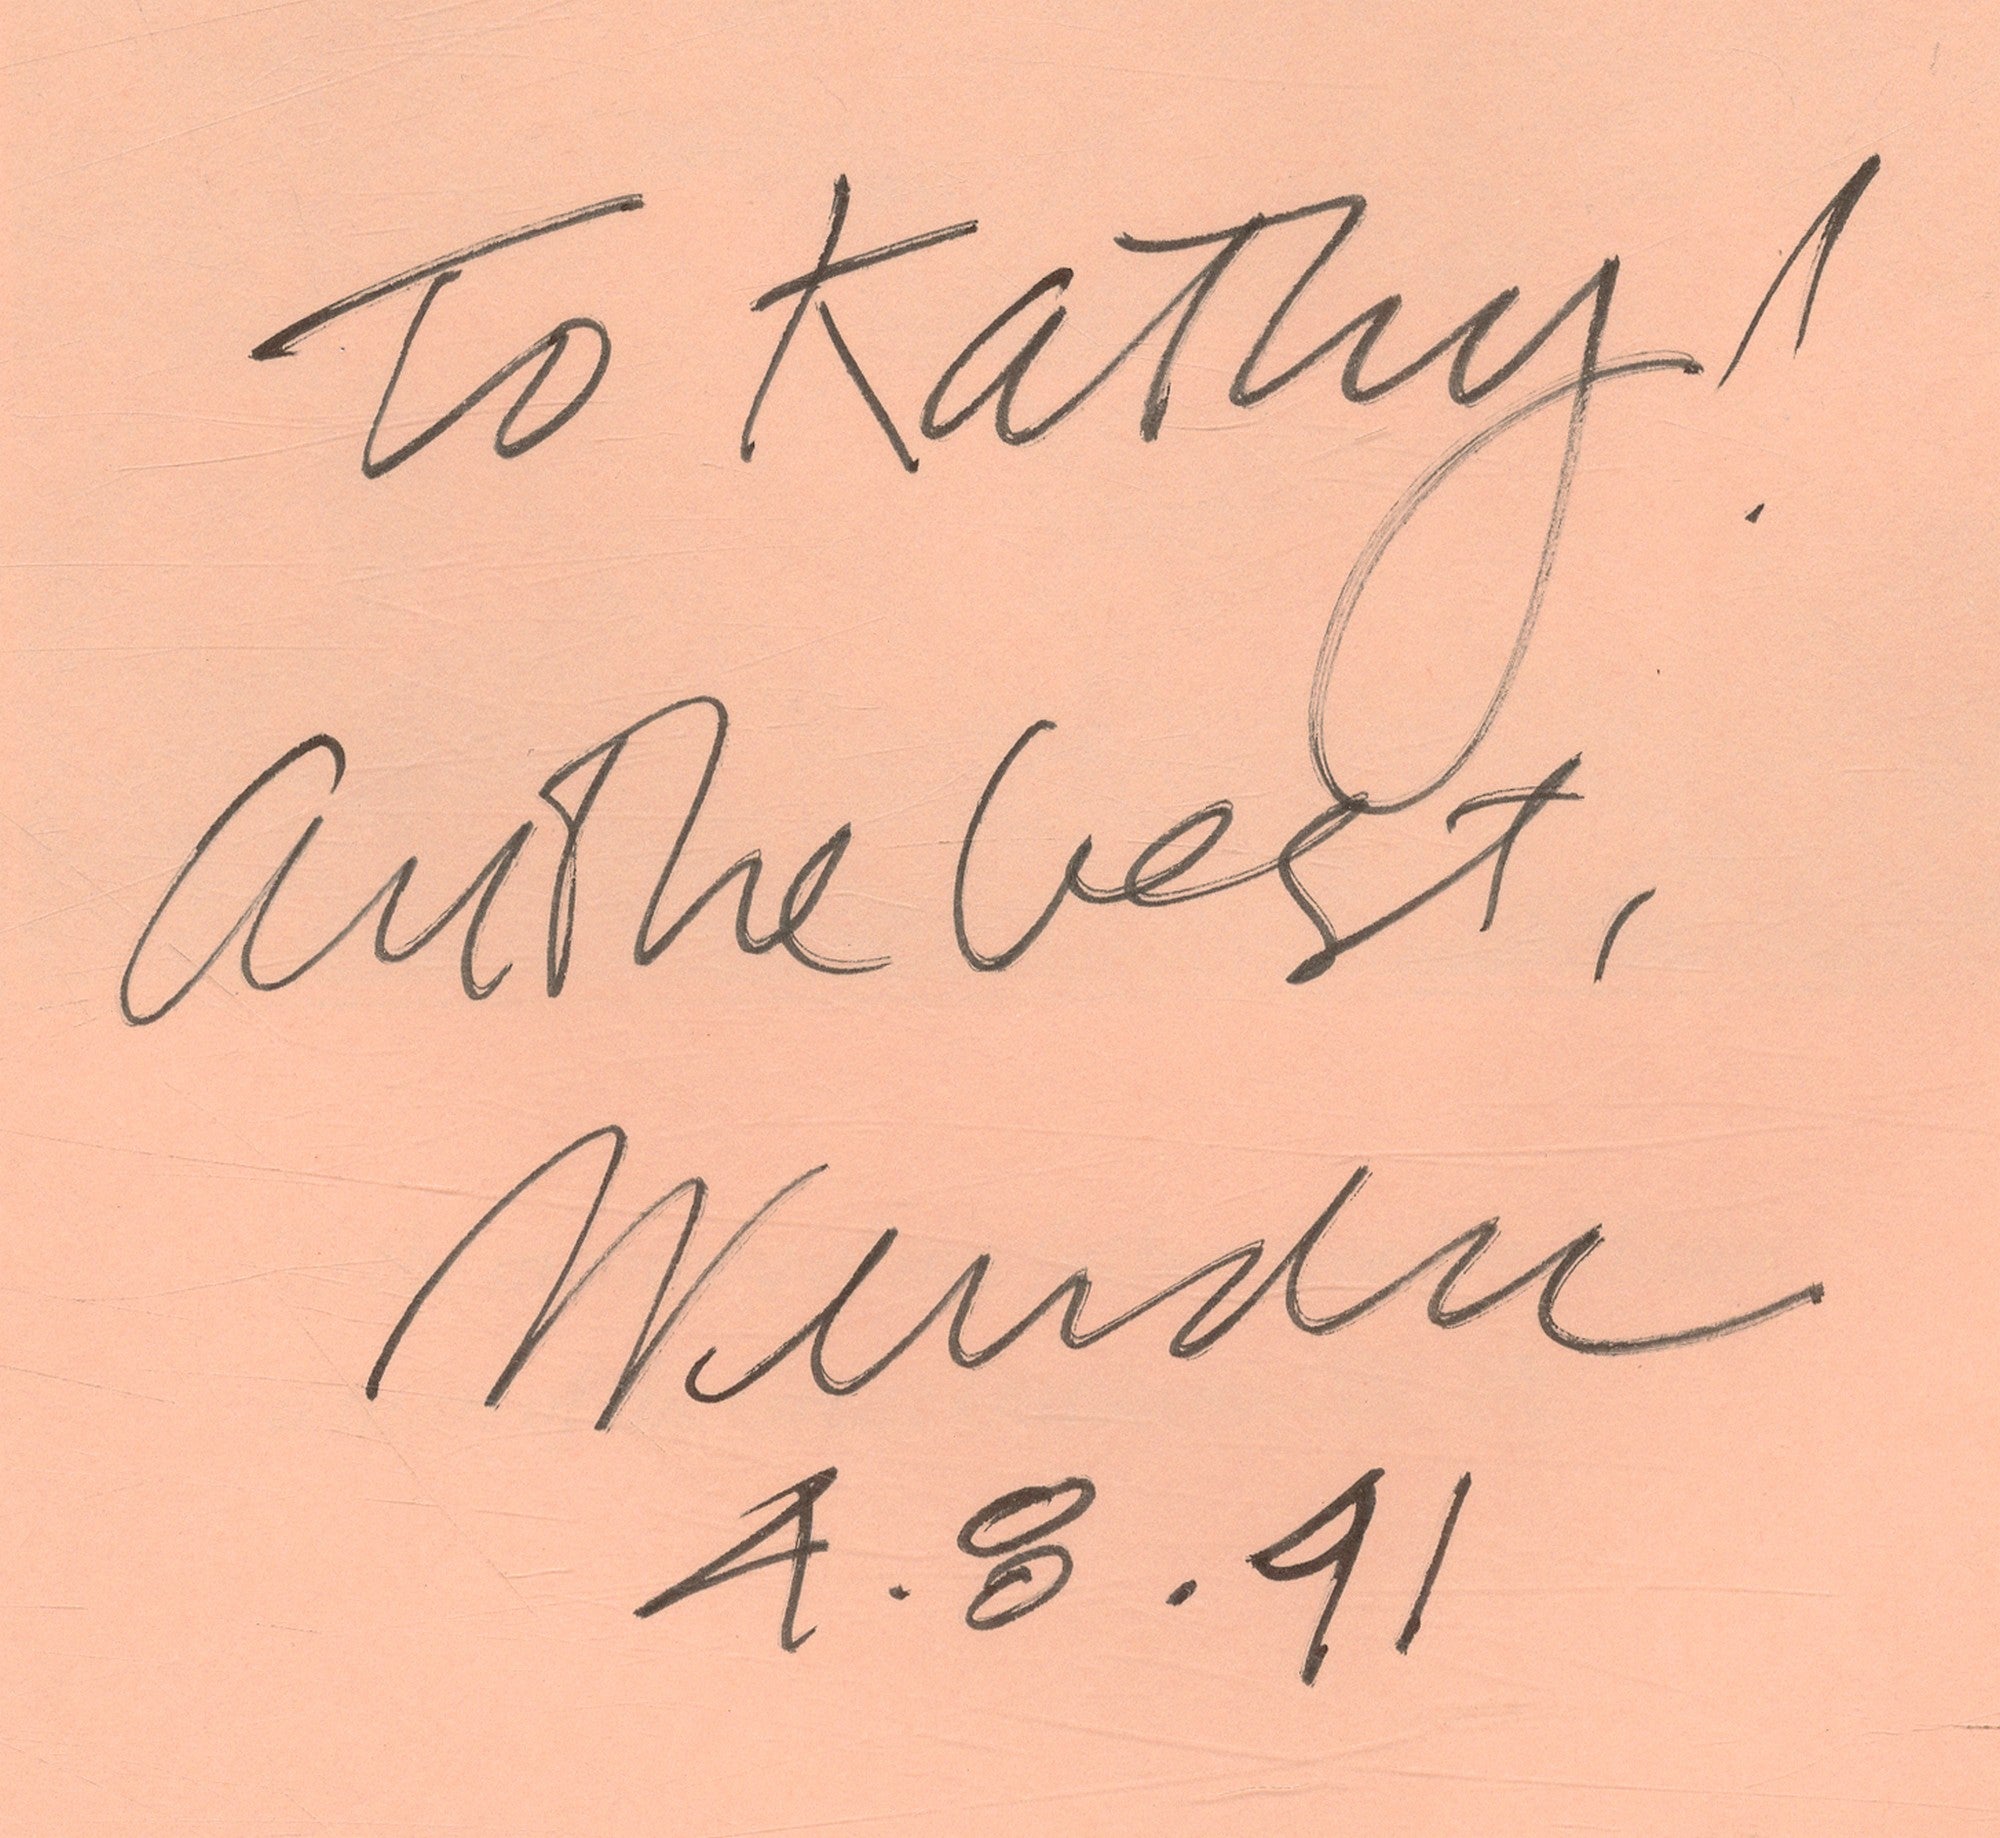 To Kathy!
All the best,
4.8.91